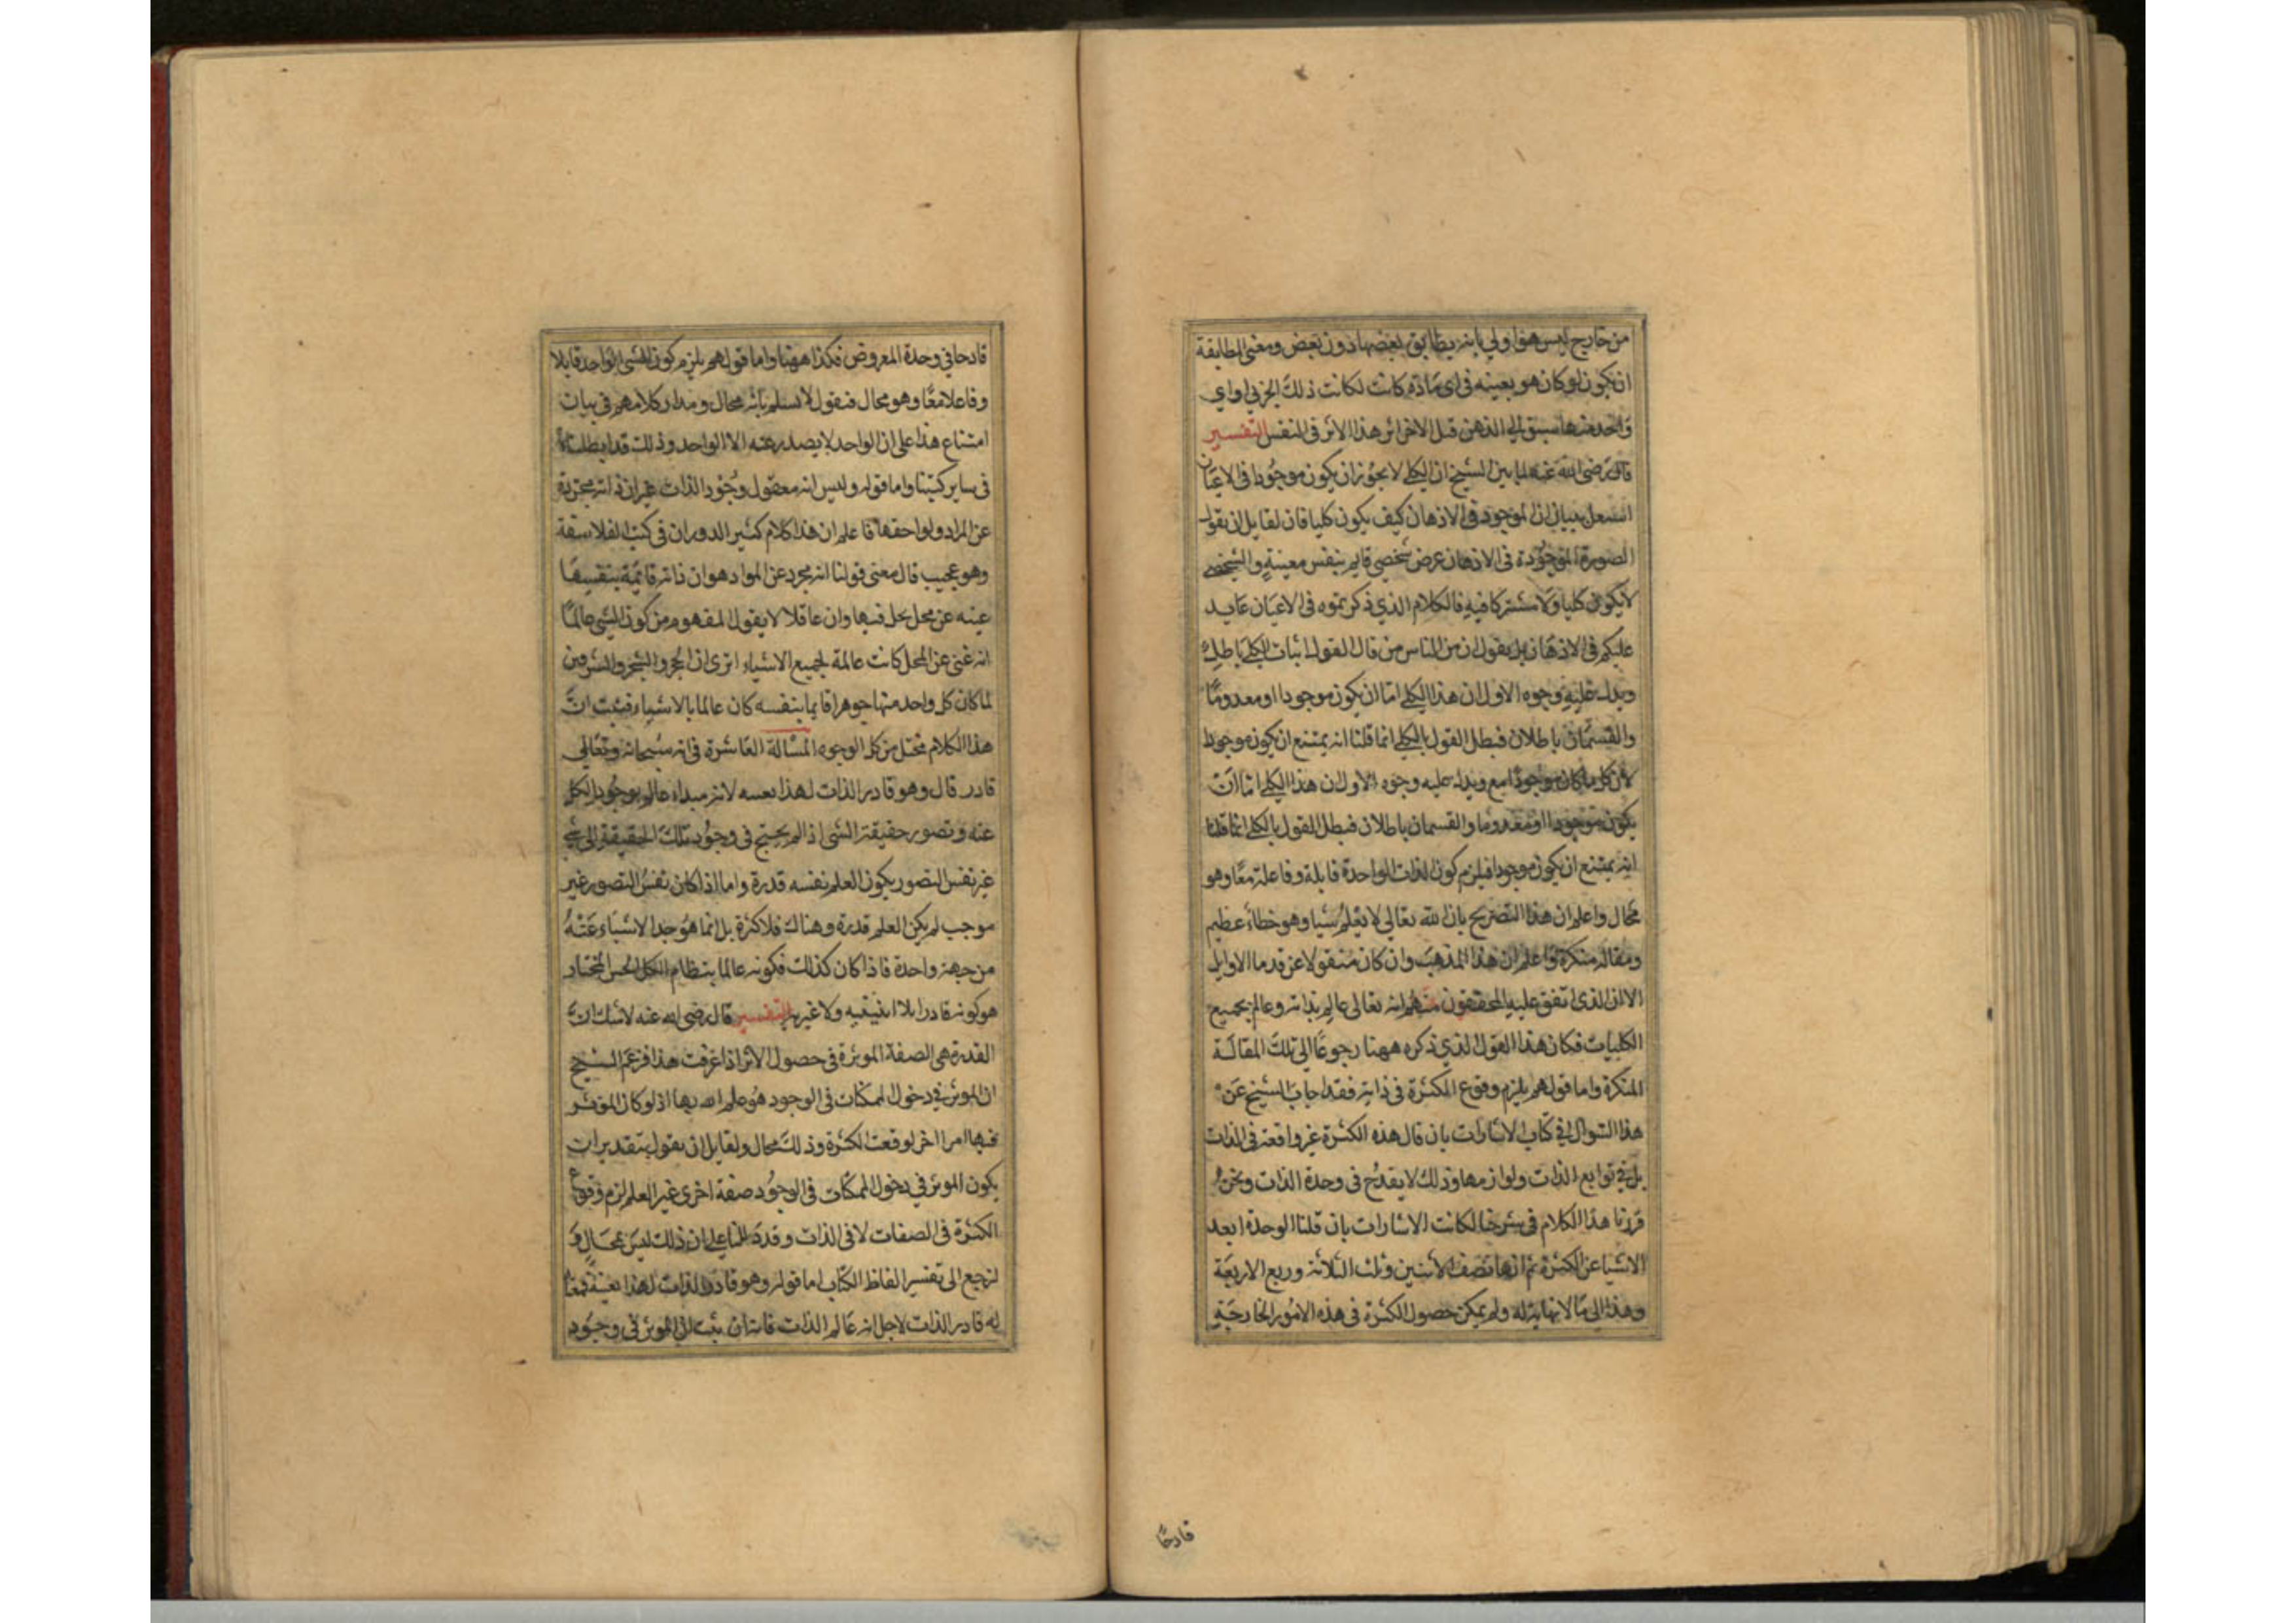 من خارج ليس هو اولي بانه يطابق بعضها دون بعض ومعنى المطابقة
ان يكون لو كان هو بعينه في اى مادة كانت لكانت ذلك الجزبى او اي
واحد منها سبق الى الذهن قبل الاخر اثر هذا الاثر في النفس التفسير
قال رضى الله عنه لما بين الشيخ ان الكلي لا يجوز ان يكون موجودا في الاعيان
اشتغل ببيان ان الموجود في الاذهان كيف يكون كليا فان لقايل ان يقول
الصورة الموجودة في الاذهان عرض شخصي قايم بنفس معينة والشخصي
لا يكون كليا ولا مشتركا فيه فالكلام الذي ذكرتموه في الاعيان عايد
عليكم في الاذهان بل يقول ان من الناس من قال القول اثبات الكلي باطل
ويدل عليه وجوه الاول ان هذا الكلي اما ان يكون موجودا او معدوما
والقسمان باطلان فبطل القول بالكلي انما قلنا انه يمتنع ان يكون موجودا
لان كل ما كان موجودا مع ويدل عليه وجوه الاول ان هذا الكلي اما ان
يكون موجودا او معدوما والقسمان باطلان فبطل القول بالكلي انما قلنا
انه يمتنع ان يكون موجودا فيلزم كون الذات الواحدة قابلة وفاعلة معا وهو
محال واعلم ان هذا التصريح بان الله تعالي لا يعلم شيا وهو خطاء عظيم
ومقالة منكرة واعلم ان هذا المذهب وان كان منقولا عن قدما الاوايل
الا ان الذى اتفق عليه المحققون منهم انه تعالى عالم بذاته وعالم بجميع
الكليات فكان هذا القول الذي ذكره ههنا رجوعا الي تلك المقالة
المنكرة واما قولهم يلزم وقوع الكثرة في ذاته فقد اجاب الشيخ عن
هذا السوال في كتاب الاشارات بان قال هذه الكثرة غير واقعة في الذات
بل في توابع الذات ولوازمها وذلك لا يقدح في وحدة الذات ونحن
قررنا هذا الكلام في شرحنا لكتاب الاشارات بان قلنا الوحدة ابعد
الاشيا عن الكثرة ثم انها نصف الاثنين وثلث الثلاثة وربع الاربعة
وهذا الي ما لا نهاية له ولم يمكن حصول الكثرة في هذه الامور الخارجية
قادحا
قادحا في وحدة المعروض فكذا ههنا واما قولهم يلزم كون الشى الواحد قابلا
وفاعلا معا وهو محال فنقول لا نسلم بانه محال ومدار كلامهم في بيان
امتناع هذا على ان الواحد لا يصدر عنه الا الواحد وذلك قد ابطلناه
في ساير كتبنا واما قوله وليس انه معقول وجود الذات غير ان ذاته مجردة
عن المراد ولواحقها فاعلم ان هذا كلام كثير الدوران في كتب الفلاسفة
وهو عجيب قال معنى قولنا انه مجرد عن المواد هو ان ذاته قائمة بنفسها
عينه عن محل يحل فيها وان عاقلا لا يقول المفهوم من كون الشي عالما
انه غنى عن المحل كانت عالمة لجميع الاشياء اترى ان الحجر والشجر والسرقين
لما كان كل واحد منها جوهرا قايما بنفسه كان عالما بالاشياء فثبت ان
هذا الكلام مختل من كل الوجوه المسالة العاشرة في انه سبحانه وتعالي
قادر قال وهو قادر الذات لهذا بعينه لانه مبداء عالم بوجود الكل
عنه وتصور حقيقة الشى اذا لم يحتج في وجود تلك الحقيقة الى شي
غير نفس التصور يكون العلم نفسه قدرة واما اذا كان نفس التصور غير
موجب لم يكن العلم قدرة وهناك فلا كثرة بل انما هو جدا الاشياء عنه
من جهة واحدة فاذا كان كذلك فكونه عالما بنظام الكل الحسن المختار
هو كونه قادرا بلا اثنينيه ولا غيرية التفسير قال رضى الله عنه لا شك ان
القدرة هي الصفة الموثرة في حصول الاثر اذا عرفت هذا فزعم الشيخ
ان الموثر في دخول الممكنات في الوجود هو علم الله بها اذ لو كان الموثر
فيها امرا اخر لوقعت الكثرة وذلك محال ولقايل ان يقول بتقدير ان
يكون الموثر في دخول الممكنات في الوجود صفة اخرى غير العلم لزم وقوع
الكثرة في الصفات لا في الذات وقد دللنا على ان ذلك ليس بمحال و
لنرجع الى تفسير الفاظ الكتاب اما قوله وهو قادر الذات لهذا بعينه فمعنا
له قادر الذات لاجل انه عالم الذات فانه ان ثبت ان الموثر في وجود